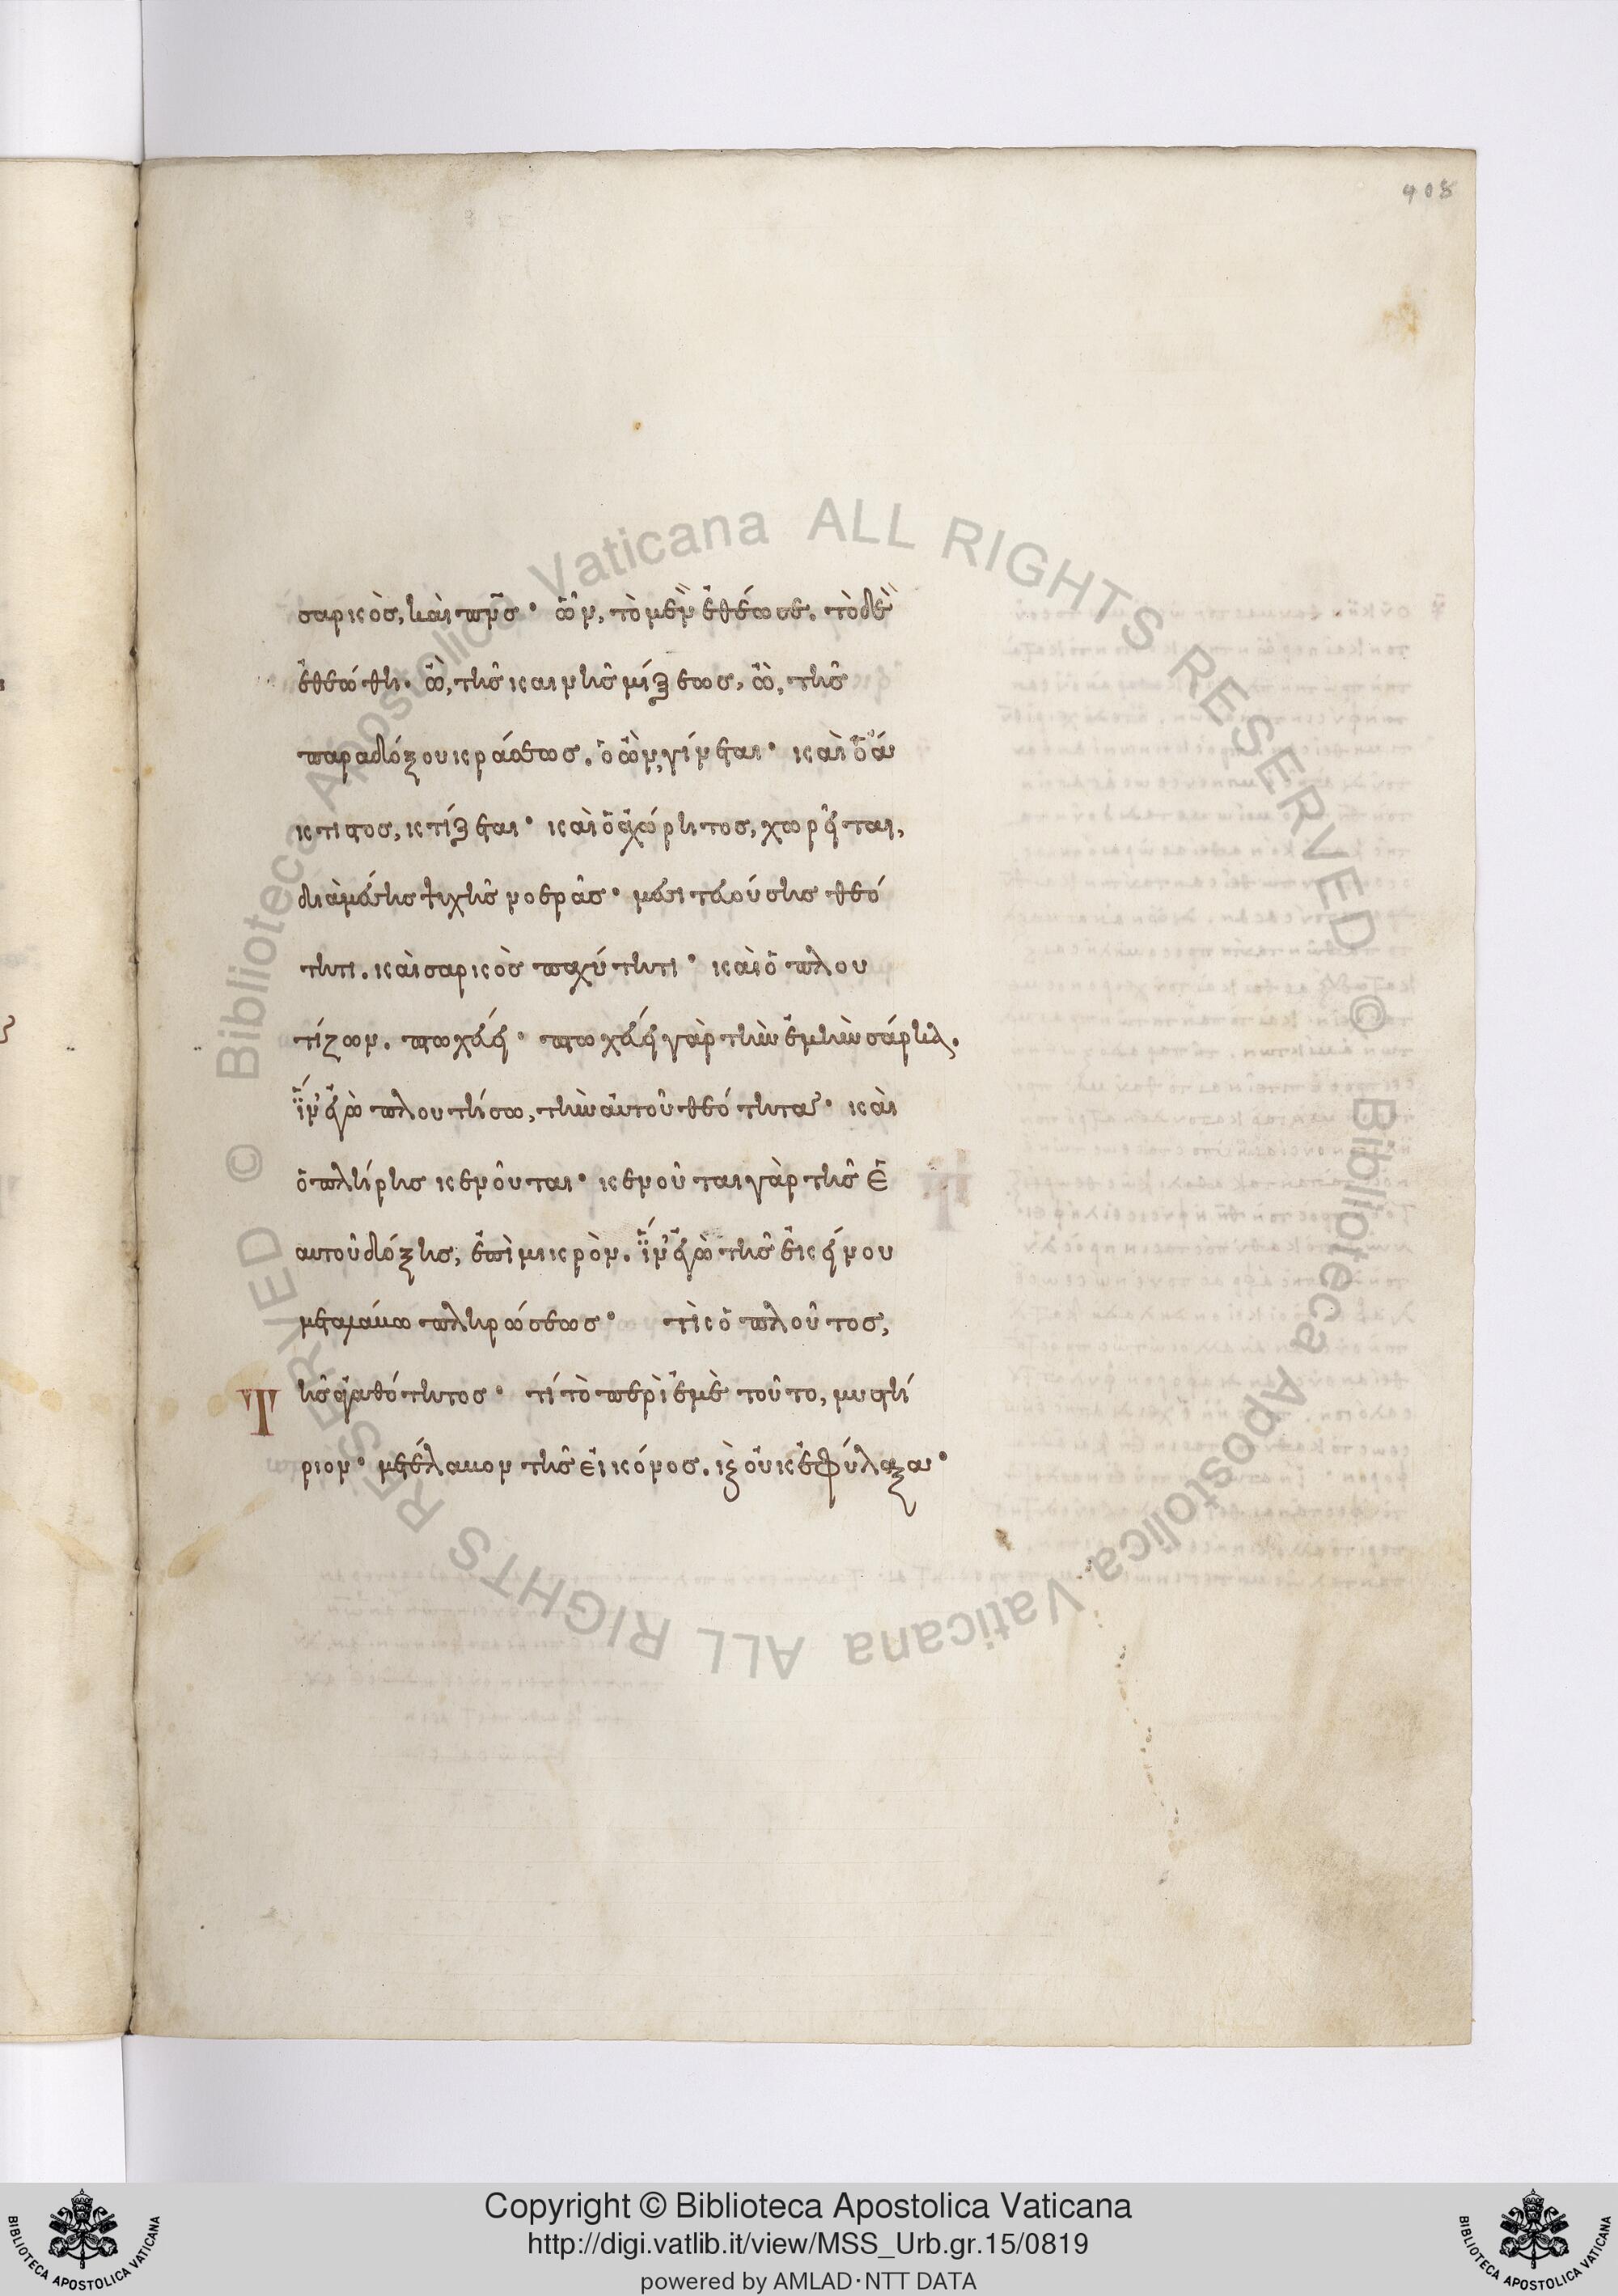 408
σαρκὸς, καὶ πν̅ς· ὧν, τὸ μὲν ἐθέωσε. τὸ δὲ
ἐθεώθη. ὢ, τῆς καινῆς μίξεως, ὢ, τῆς
παραδόξου κράσεως. ὁ ὢν, γίνεται· καὶ ὁ ἄ
κτιστος, κτίζεται· καὶ ὁ ἀχώρητος, χωρεῖται,
διὰ μέσης ψυχῆς νοερᾶς· μεσιτευούσης θεό
τητι. καὶ σαρκὸς παχύτητι· καὶ ὁ πλου
τίζων. πτωχεύει· πτωχεύει γὰρ τὴν ἐμὴν σάρκα.
ἵν' ἐγὼ πλουτήσω, τὴν αὐτοῦ θεότητα· καὶ
ὁ πλήρης κενοῦται· κενοῦται γὰρ τῆς ἑ
αυτοῦ δόξης, ἐπὶ μικρὸν. ἵν' ἐγὼ τῆς ἐκείνου
μεταλάβω πληρώσεως· τίς ὁ πλοῦτος,
Τῆς ἀγαθότητος· τί τὸ περὶ ἐμὲ τοῦτο, μυστή
ριον· μετέλαβον τῆς εἰκόνος. κ(αὶ) οὐκ ἐφύλαξα·
© Biblioteca Apostolica Vaticana ALL RIGHTS RESERVED
© Biblioteca Apostolica Vaticana ALL RIGHTS RESERVED
Copyright © Biblioteca Apostolica Vaticana
http://digi.vatlib.it/view/MSS_Urb.gr.15/0819
powered by AMLAD·NTT DATA
BIBLIOTECA APOSTOLICA VATICANA
BIBLIOTECA APOSTOLICA VATICANA